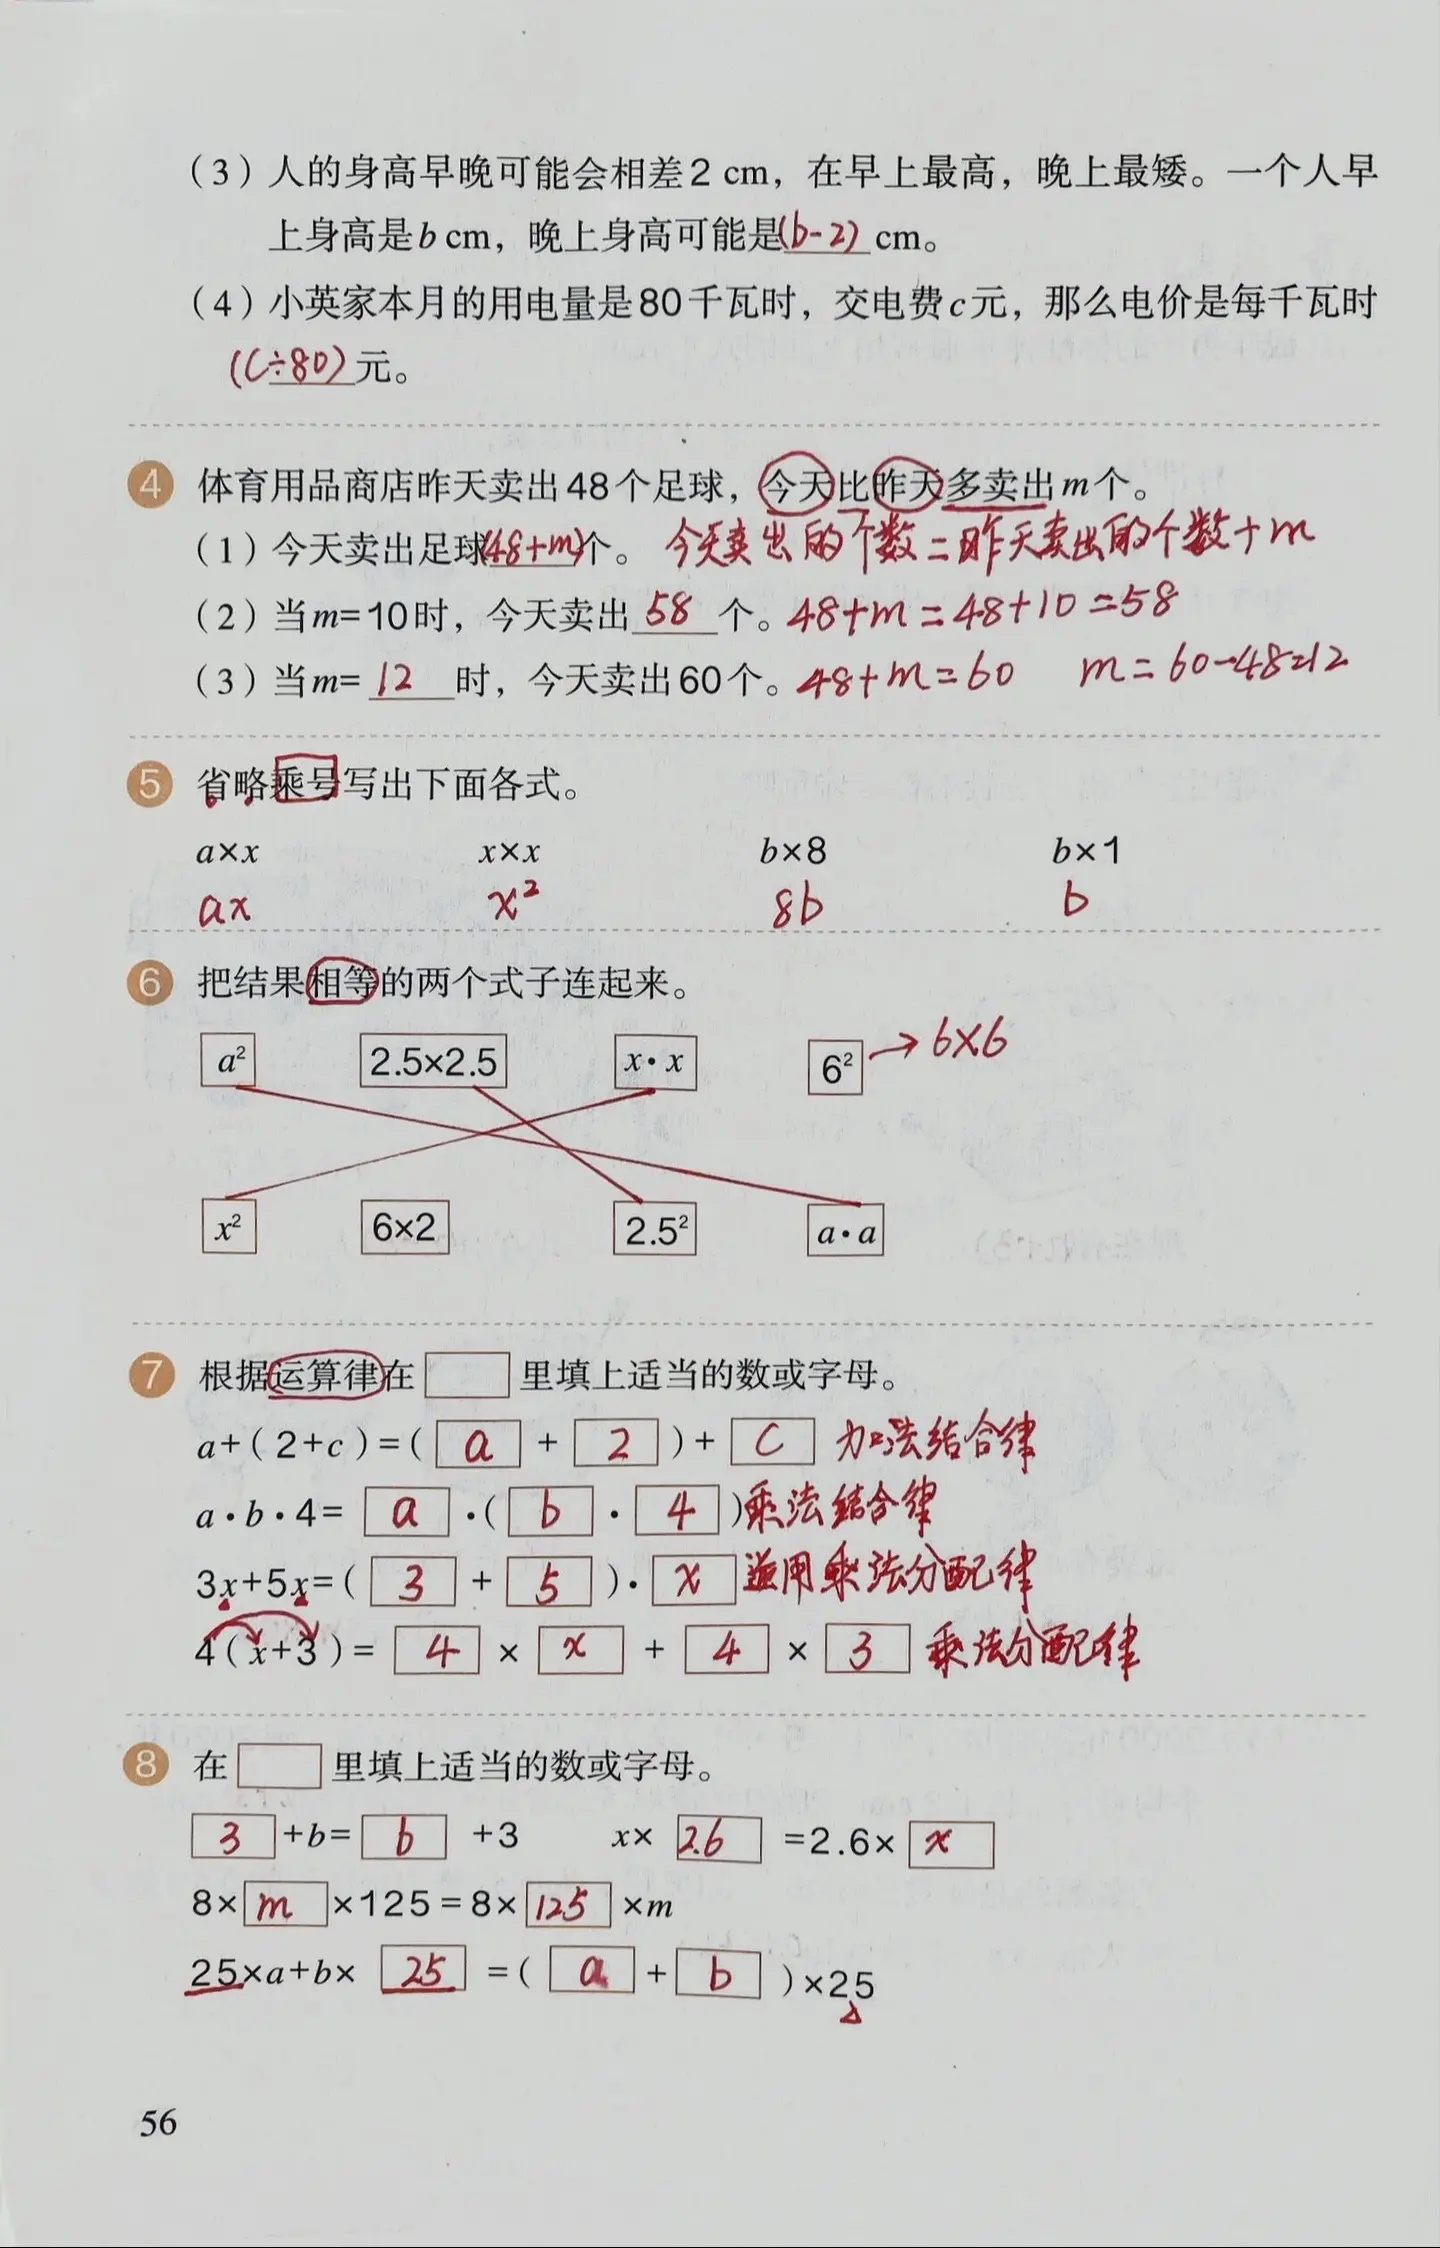 (3) 人的身高早晚可能会相差2 cm，在早上最高，晚上最矮。一个人早
上身高是b cm，晚上身高可能是(b-2) cm。
(4) 小英家本月的用电量是80千瓦时，交电费c元，那么电价是每千瓦时
(c÷80)元。
4 体育用品商店昨天卖出48个足球，今天比昨天多卖出m个。
(1) 今天卖出足球(48+m)个。 今天卖出的个数=昨天卖出的个数+m
(2) 当m=10时，今天卖出 58 个。48+m=48+10=58
(3) 当m= 12 时，今天卖出60个。48+m=60 m=60-48=12
5 省略乘号写出下面各式。
a×x x×x b×8 b×1
ax x² 8b b
6 把结果相等的两个式子连起来。
a² 2.5×2.5 x·x 6² → 6×6
x² 6×2 2.5² a·a
7 根据运算律在 里填上适当的数或字母。
a+(2+c)=( a + 2 )+ c 加法结合律
a·b·4= a ·( b · 4 )乘法结合律
3x+5x=( 3 + 5 )· x 逆用乘法分配律
4(x+3)= 4 × x + 4 × 3 乘法分配律
8 在 里填上适当的数或字母。
3 +b= b +3 x× 2.6 =2.6× x
8× m ×125=8× 125 ×m
25×a+b× 25 =( a + b )×25
56